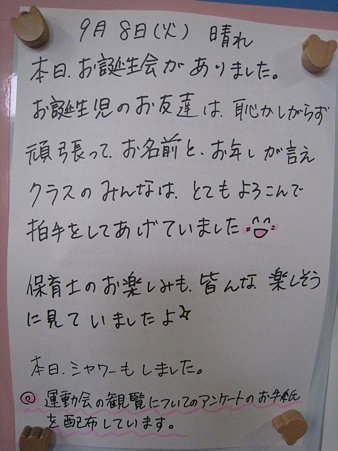 9月8日(火) 晴れ
本日、お誕生会がありました。
お誕生児のお友達は、恥かしがらず
頑張って、お名前と、お年しが言え
クラスのみんなは、とてもよろこんで
拍手をしてあげていました
保育士のお楽しみも、皆んな楽しそう
に見ていましたよ
本日、シャワーもしました。
@ 運動会の観覧についてのアンケートのお手紙
を配布しています。